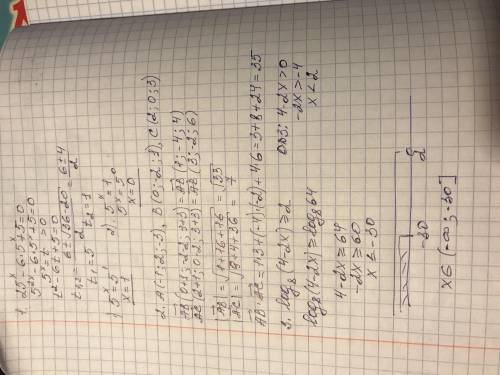 1. 25ˣ - 6·5ˣ + 5 = 0
5²ˣ - 6·5ˣ + 5 = 0
5ˣ = t
t² - 6t + 5 = 0
t₁,₂ = (6 ± √(36-20))/2 = (6 ± 4)/2
t₁ = 5 t₂ = 1
1) 5ˣ = 5¹ 2) 5ˣ = 1
x = 1 5ˣ = 5⁰
x = 0
2. A(-1; -2; -3), B(0; -2; 1), C(2; 0; 3)
AB(0+1; -2-2; 3+3) = AB(1; -4; 4)
AC(2+1; 0+2; 3+3) = AC(3; -2; 6)
|AB| = √(1+16+16) = √33
|AC| = √(9+4+36) = 7
AB·AC = 1·3 + (-4)·(-2) + 4·6 = 3+8+24 = 35
3. log₈(4-2x) ≥ 2 ОДЗ: 4-2x > 0
log₈(4-2x) ≥ log₈64 -2x > -4
4-2x ≥ 64 x < 2
-2x ≥ 60
x ≤ -30
-30 2
x ∈ (-∞; -30]